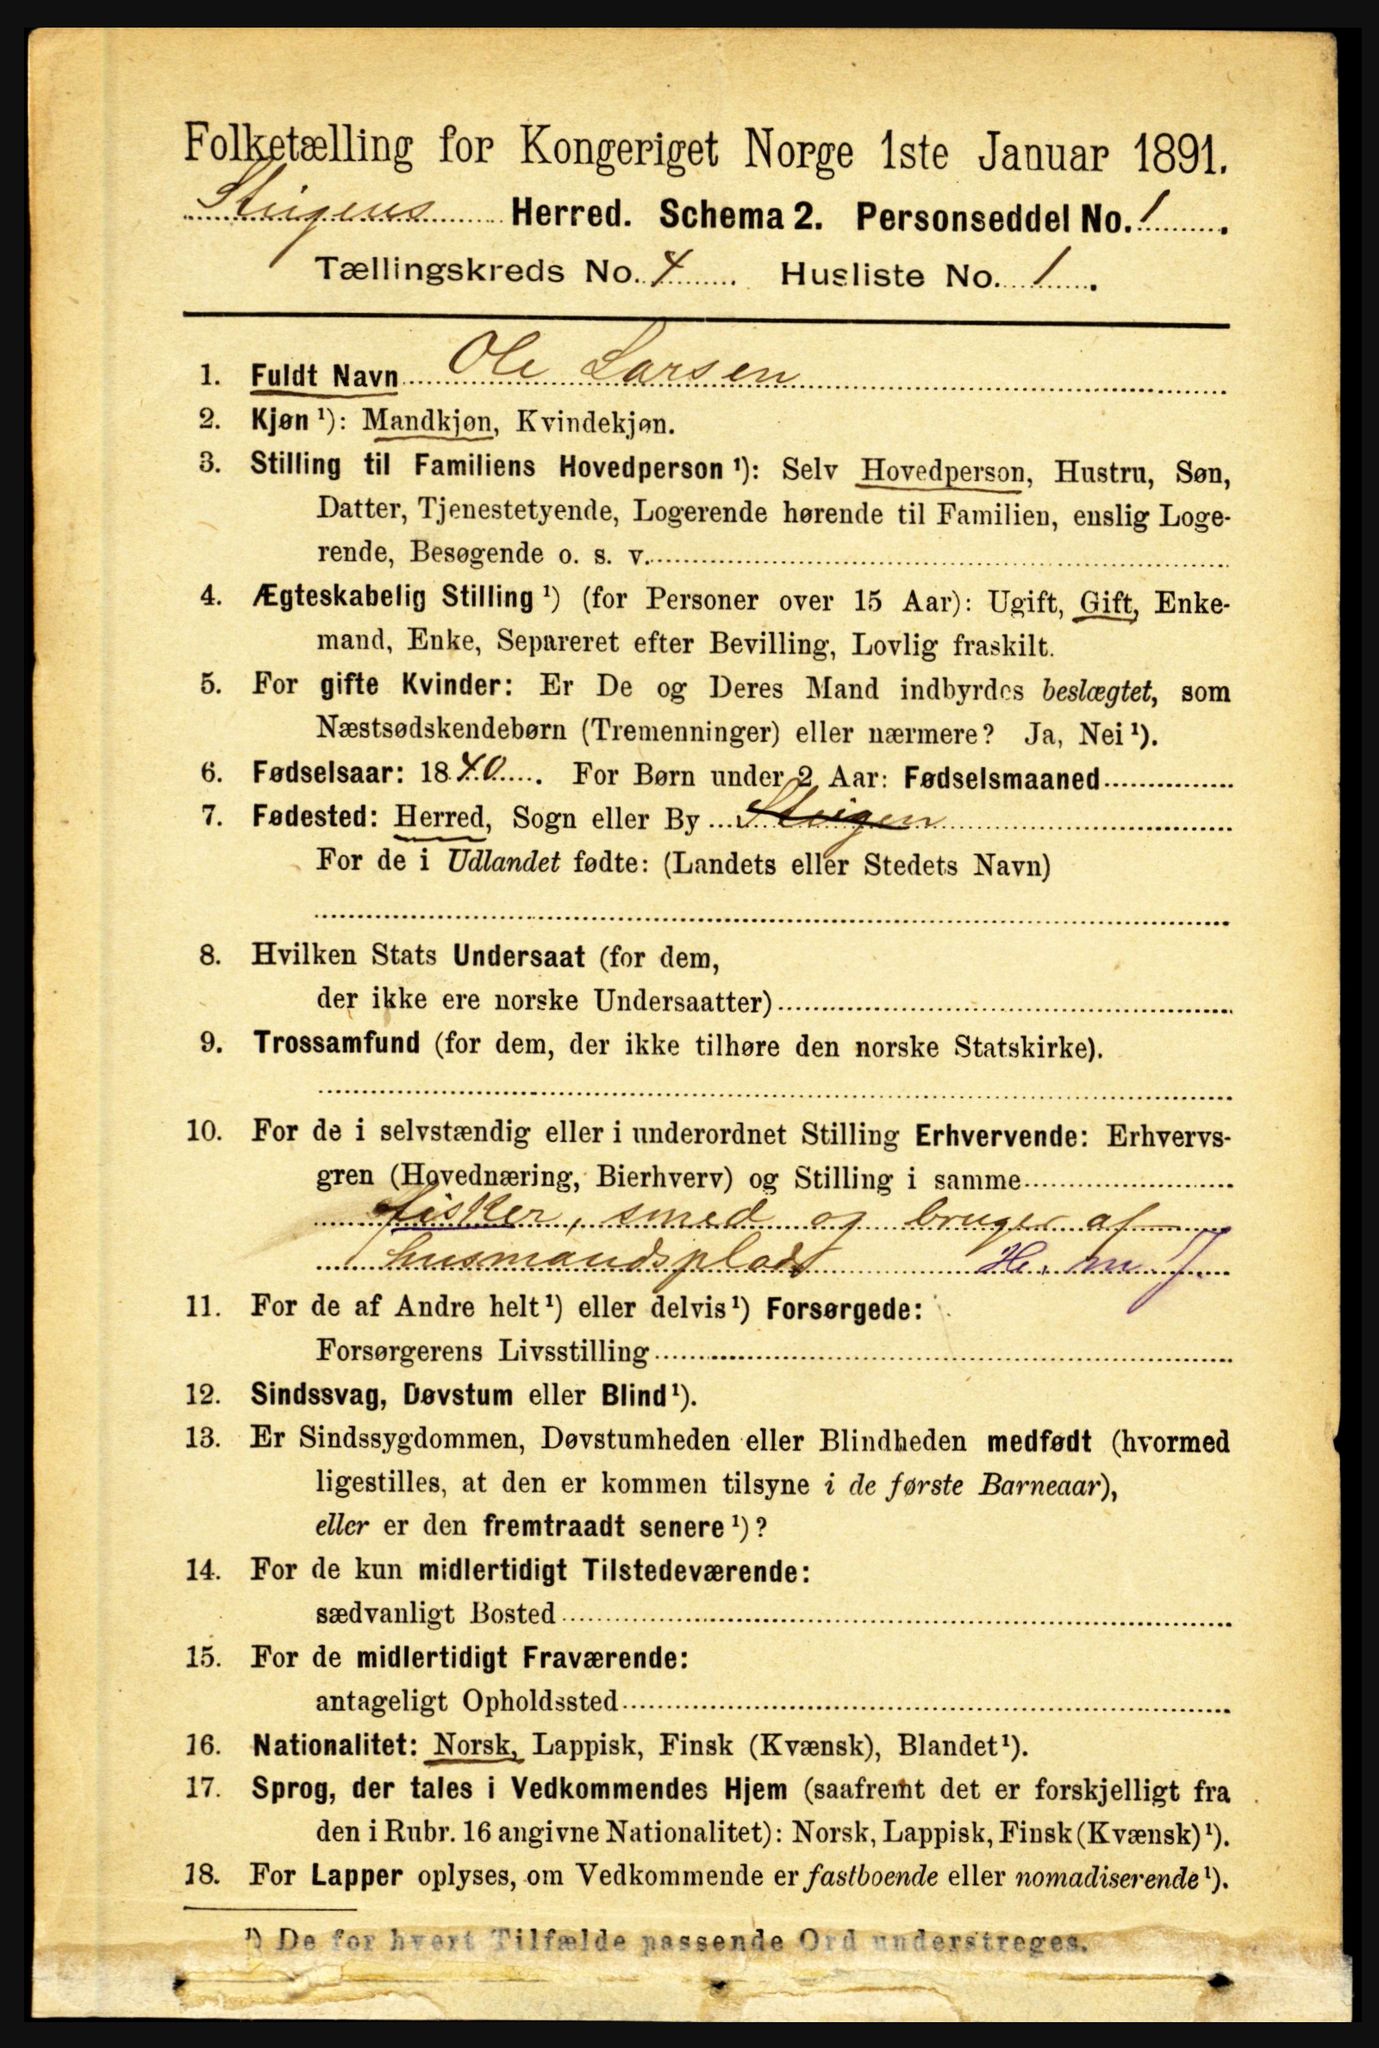 Folketælling for Kongeriget Norge 1ste Januar 1891.
Steigens Herred. Schema 2. Personseddel No. 1.
Tællingskreds No. 4. Husliste No. 1.
1. Fuldt Navn Ole Larsen
2. Kjøn¹): Mandkjøn, Kvindekjøn.
3. Stilling til Familiens Hovedperson¹): Selv Hovedperson, Hustru, Søn,
Datter, Tjenestetyende, Logerende hørende til Familien, enslig Loge-
rende, Besøgende o. s. v.
4. Ægteskabelig Stilling¹) (for Personer over 15 Aar): Ugift, Gift, Enke-
mand, Enke, Separeret efter Bevilling, Lovlig fraskilt.
5. For gifte Kvinder: Er De og Deres Mand indbyrdes beslægtet, som
Næstsødskendebørn (Tremenninger) eller nærmere? Ja, Nei¹).
6. Fødselsaar: 1840. For Børn under 2 Aar: Fødselsmaaned
7. Fødested: Herred, Sogn eller By Steigen
For de i Udlandet fødte: (Landets eller Stedets Navn)
8. Hvilken Stats Undersaat (for dem,
der ikke ere norske Undersaatter)
9. Trossamfund (for dem, der ikke tilhøre den norske Statskirke).
10. For de i selvstændig eller i underordnet Stilling Erhvervende: Erhvervs-
gren (Hovednæring, Bierhverv) og Stilling i samme
fisker, smed og bruger af
husmandsplads H. m. J.
11. For de af Andre helt¹) eller delvis¹) Forsørgede:
Forsørgerens Livsstilling
12. Sindssvag, Døvstum eller Blind¹).
13. Er Sindssygdommen, Døvstumheden eller Blindheden medfødt (hvormed
ligestilles, at den er kommen tilsyne i de første Barneaar),
eller er den fremtraadt senere¹)?
14. For de kun midlertidigt Tilstedeværende:
sædvanligt Bosted
15. For de midlertidigt Fraværende:
antageligt Opholdssted
16. Nationalitet: Norsk, Lappisk, Finsk (Kvænsk), Blandet¹).
17. Sprog, der tales i Vedkommendes Hjem (saafremt det er forskjelligt fra
den i Rubr. 16 angivne Nationalitet): Norsk, Lappisk, Finsk (Kvænsk)¹).
18. For Lapper oplyses, om Vedkommende er fastboende eller nomadiserende¹).
¹) De for hvert Tilfælde passende Ord understreges.